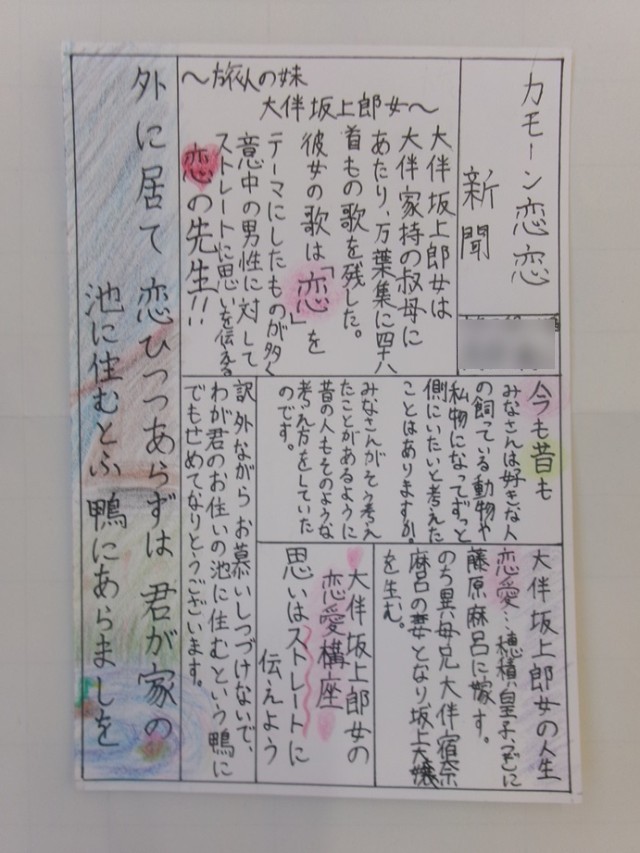 カモーン恋恋
新聞
～旅人の妹
大伴坂上郎女～
大伴坂上郎女は
大伴家持の叔母に
あたり、万葉集に四十八
首もの歌を残した。
彼女の歌は「恋」を
テーマにしたものが多く
意中の男性に対して
ストレートに思いを伝える
恋の先生!!
今も昔も
みなさんは好きな人
の飼っている動物や
私物になってずっと
側にいたいと考えた
ことはありますか。
みなさんがそう考え
たことがあるように
昔の人もそのような
考え方をしていた
のです。
大伴坂上郎女の人生
恋愛…穂積皇子、つぎに
藤原麻呂に嫁す。
のち異母兄大伴宿奈
麻呂の妻となり坂上大嬢
を生む。
大伴坂上郎女の
恋愛構座
思いはストレートに
伝えよう
訳 外ながらお慕いしつづけないで、
わが君のお住いの池に住むという鴨に
でもせめてなりとうございます。
外に居て 恋ひつつあらずは 君が家の
池に住むとふ 鴨にあらましを